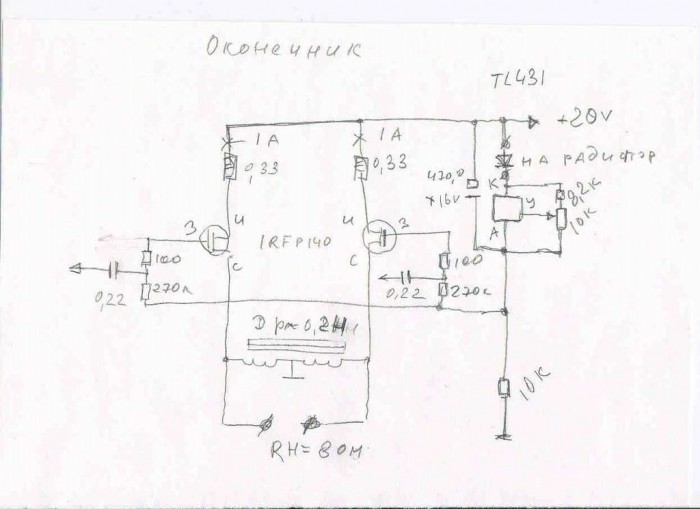 Оконечник
TL431
+20V
1А
1А
0,33
0,33
на радиатор
470,0
×16v
К
У
А
8,2к
10к
И
И
З
З
IRFP140
С
С
100
100
0,22
270к
0,22
270к
Др=0,2Н
10к
RН=8ОМ